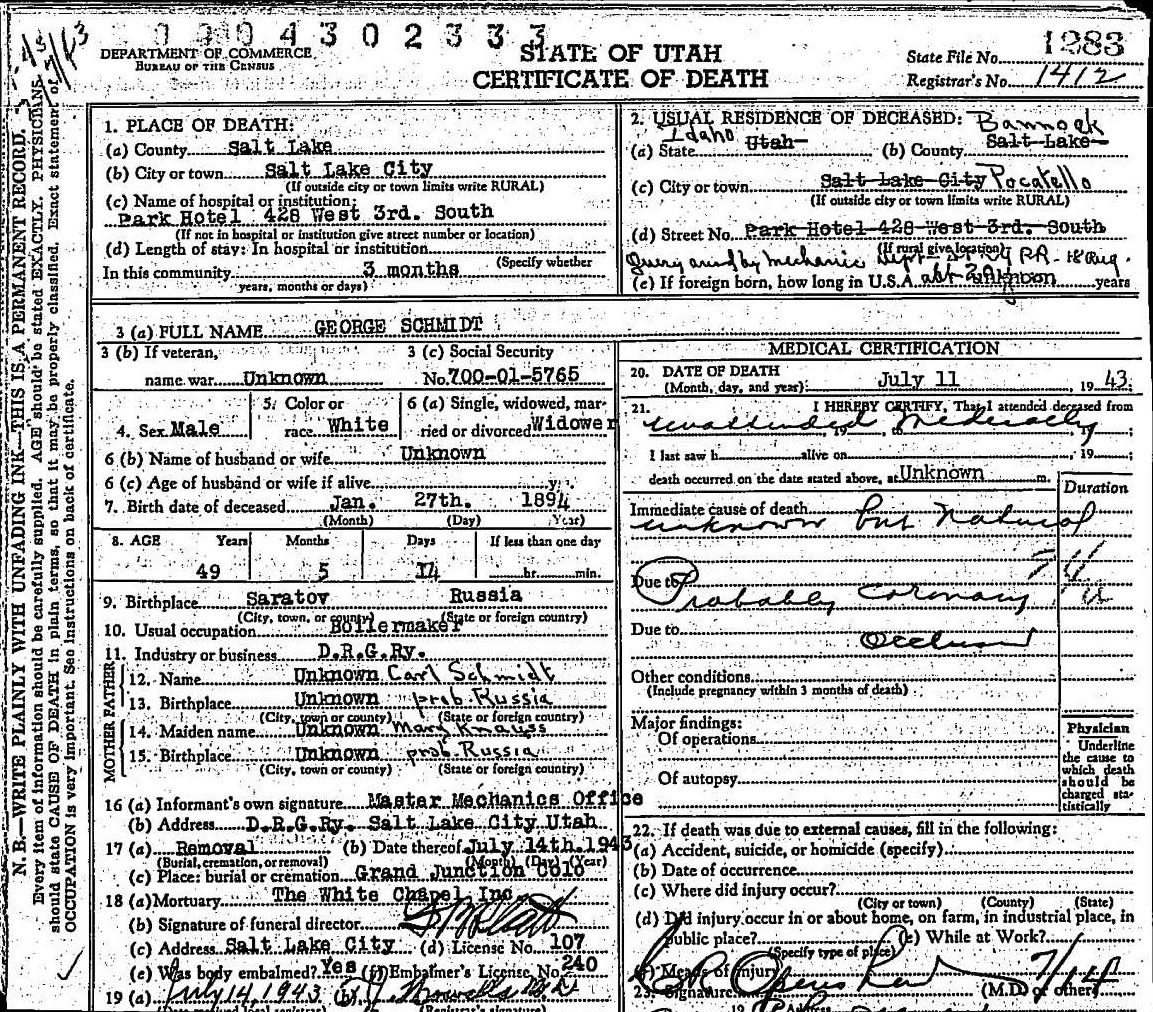 0 9 0 4 3 0 2 3 3 3
DEPARTMENT OF COMMERCE
BUREAU OF THE CENSUS
STATE OF UTAH
CERTIFICATE OF DEATH
State File No. 1283
Registrar's No. 1412
N. B.—WRITE PLAINLY WITH UNFADING INK—THIS IS A PERMANENT RECORD.
Every item of information should be carefully supplied. AGE should be stated EXACTLY. PHYSICIANS
should state CAUSE OF DEATH in plain terms, so that it may be properly classified. Exact statement of
OCCUPATION is very important. See instructions on back of certificate.
1. PLACE OF DEATH:
(a) County Salt Lake
(b) City or town Salt Lake City
(If outside city or town limits write RURAL)
(c) Name of hospital or institution:
Park Hotel 428 West 3rd. South
(If not in hospital or institution give street number or location)
(d) Length of stay: In hospital or institution
(Specify whether
In this community 3 months
years, months or days)
2. USUAL RESIDENCE OF DECEASED: Bannock
Idaho
(a) State Utah (b) County Salt Lake
(c) City or town Salt Lake City Pocatello
(If outside city or town limits write RURAL)
(d) Street No. Park Hotel 428 West 3rd. South
(If rural give location)
Query ansd by Mechanic Dept RR - 18 Aug.
(e) If foreign born, how long in U.S.A. abt unknown years
3 (a) FULL NAME GEORGE SCHMIDT
3 (b) If veteran,
name war Unknown
3 (c) Social Security
No. 700-01-5765
4. Sex Male
5. Color or
race White
6 (a) Single, widowed, mar-
ried or divorced Widower
6 (b) Name of husband or wife Unknown
6 (c) Age of husband or wife if alive y.
7. Birth date of deceased Jan. 27th. 1894
(Month) (Day) (Year)
8. AGE Years Months Days If less than one day
49 5 14 hr. min.
9. Birthplace Saratov Russia
(City, town, or county) (State or foreign country)
10. Usual occupation Boilermaker
11. Industry or business D.R.G.Ry.
FATHER
12. Name Unknown Carl Schmidt
13. Birthplace Unknown prob. Russia
(City, town or county) (State or foreign country)
MOTHER
14. Maiden name Unknown Mary Knauss
15. Birthplace Unknown prob. Russia
(City, town or county) (State or foreign country)
16 (a) Informant's own signature Master Mechanics Office
(b) Address D.R.G.Ry. Salt Lake City Utah
17 (a) Removal (b) Date thereof July 14th. 1943
(Burial, cremation, or removal) (Month) (Day) (Year)
(c) Place: burial or cremation Grand Junction Colo
18 (a) Mortuary The White Chapel Inc
(b) Signature of funeral director
(c) Address Salt Lake City (d) License No. 107
(e) Was body embalmed? Yes (f) Embalmer's License No. 240
19 (a) July 14, 1943 (b)
(Date received local registrar) (Registrar's signature)
MEDICAL CERTIFICATION
20. DATE OF DEATH
(Month, day, and year) July 11, 1943
21. I HEREBY CERTIFY, That I attended deceased from
unattended, 19 to Medically, 19 ;
I last saw h alive on , 19 ;
death occurred on the date stated above, at Unknown m.
Duration
Immediate cause of death
unknown but natural
Due to Probably coronary
Due to Occlusion
Other conditions
(Include pregnancy within 3 months of death)
Major findings:
Of operations
Of autopsy
Physician
Underline
the cause to
which death
should be
charged sta-
tistically
22. If death was due to external causes, fill in the following:
(a) Accident, suicide, or homicide (specify)
(b) Date of occurrence
(c) Where did injury occur?
(City or town) (County) (State)
(d) Did injury occur in or about home, on farm, in industrial place, in
public place? (e) While at Work?
(Specify type of place)
(f) Means of injury
23. Signature (M.D. or other)